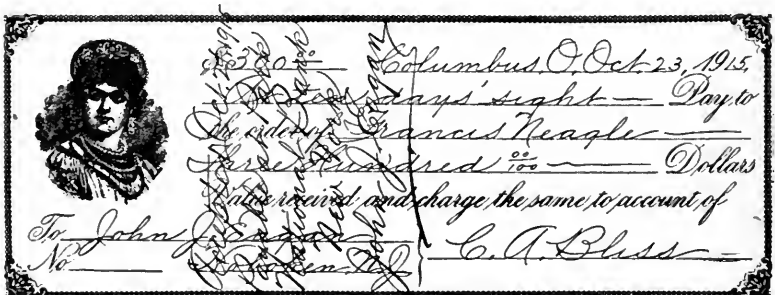 $300.00 Columbus, O. Oct. 23, 1915.
At ten days' sight — Pay to
the order of Francis Neagle —
Three hundred 00/100 — Dollars
Value received and charge the same to account of
To John J. Eagan
No. Hoboken N.J. C. A. Bliss —
Accepted Oct. 25, 1915
Payable at Park
National Bank
New York
John J. Eagan